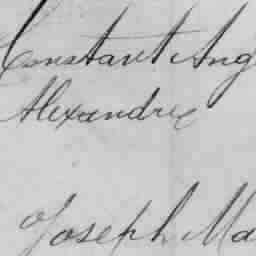 Constant Ang
Alexandre
Joseph Ma